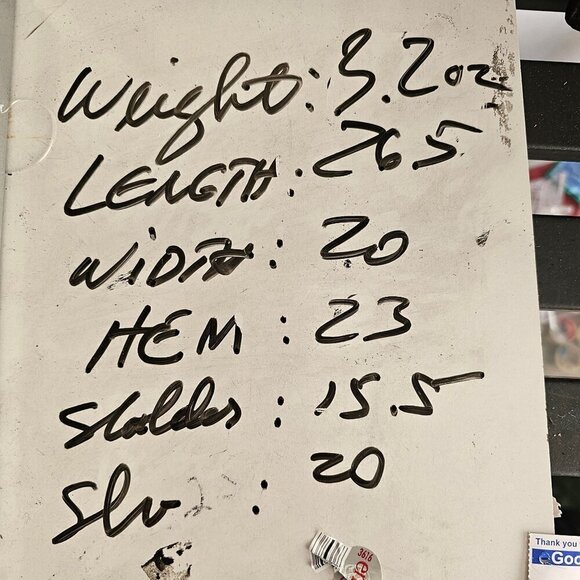 Weight: 3.2oz
LENGTH: 265
WIDTH: 20
HEM: 23
Sholdes: 15.5
Slv: 20
3616
Thank you
Goo